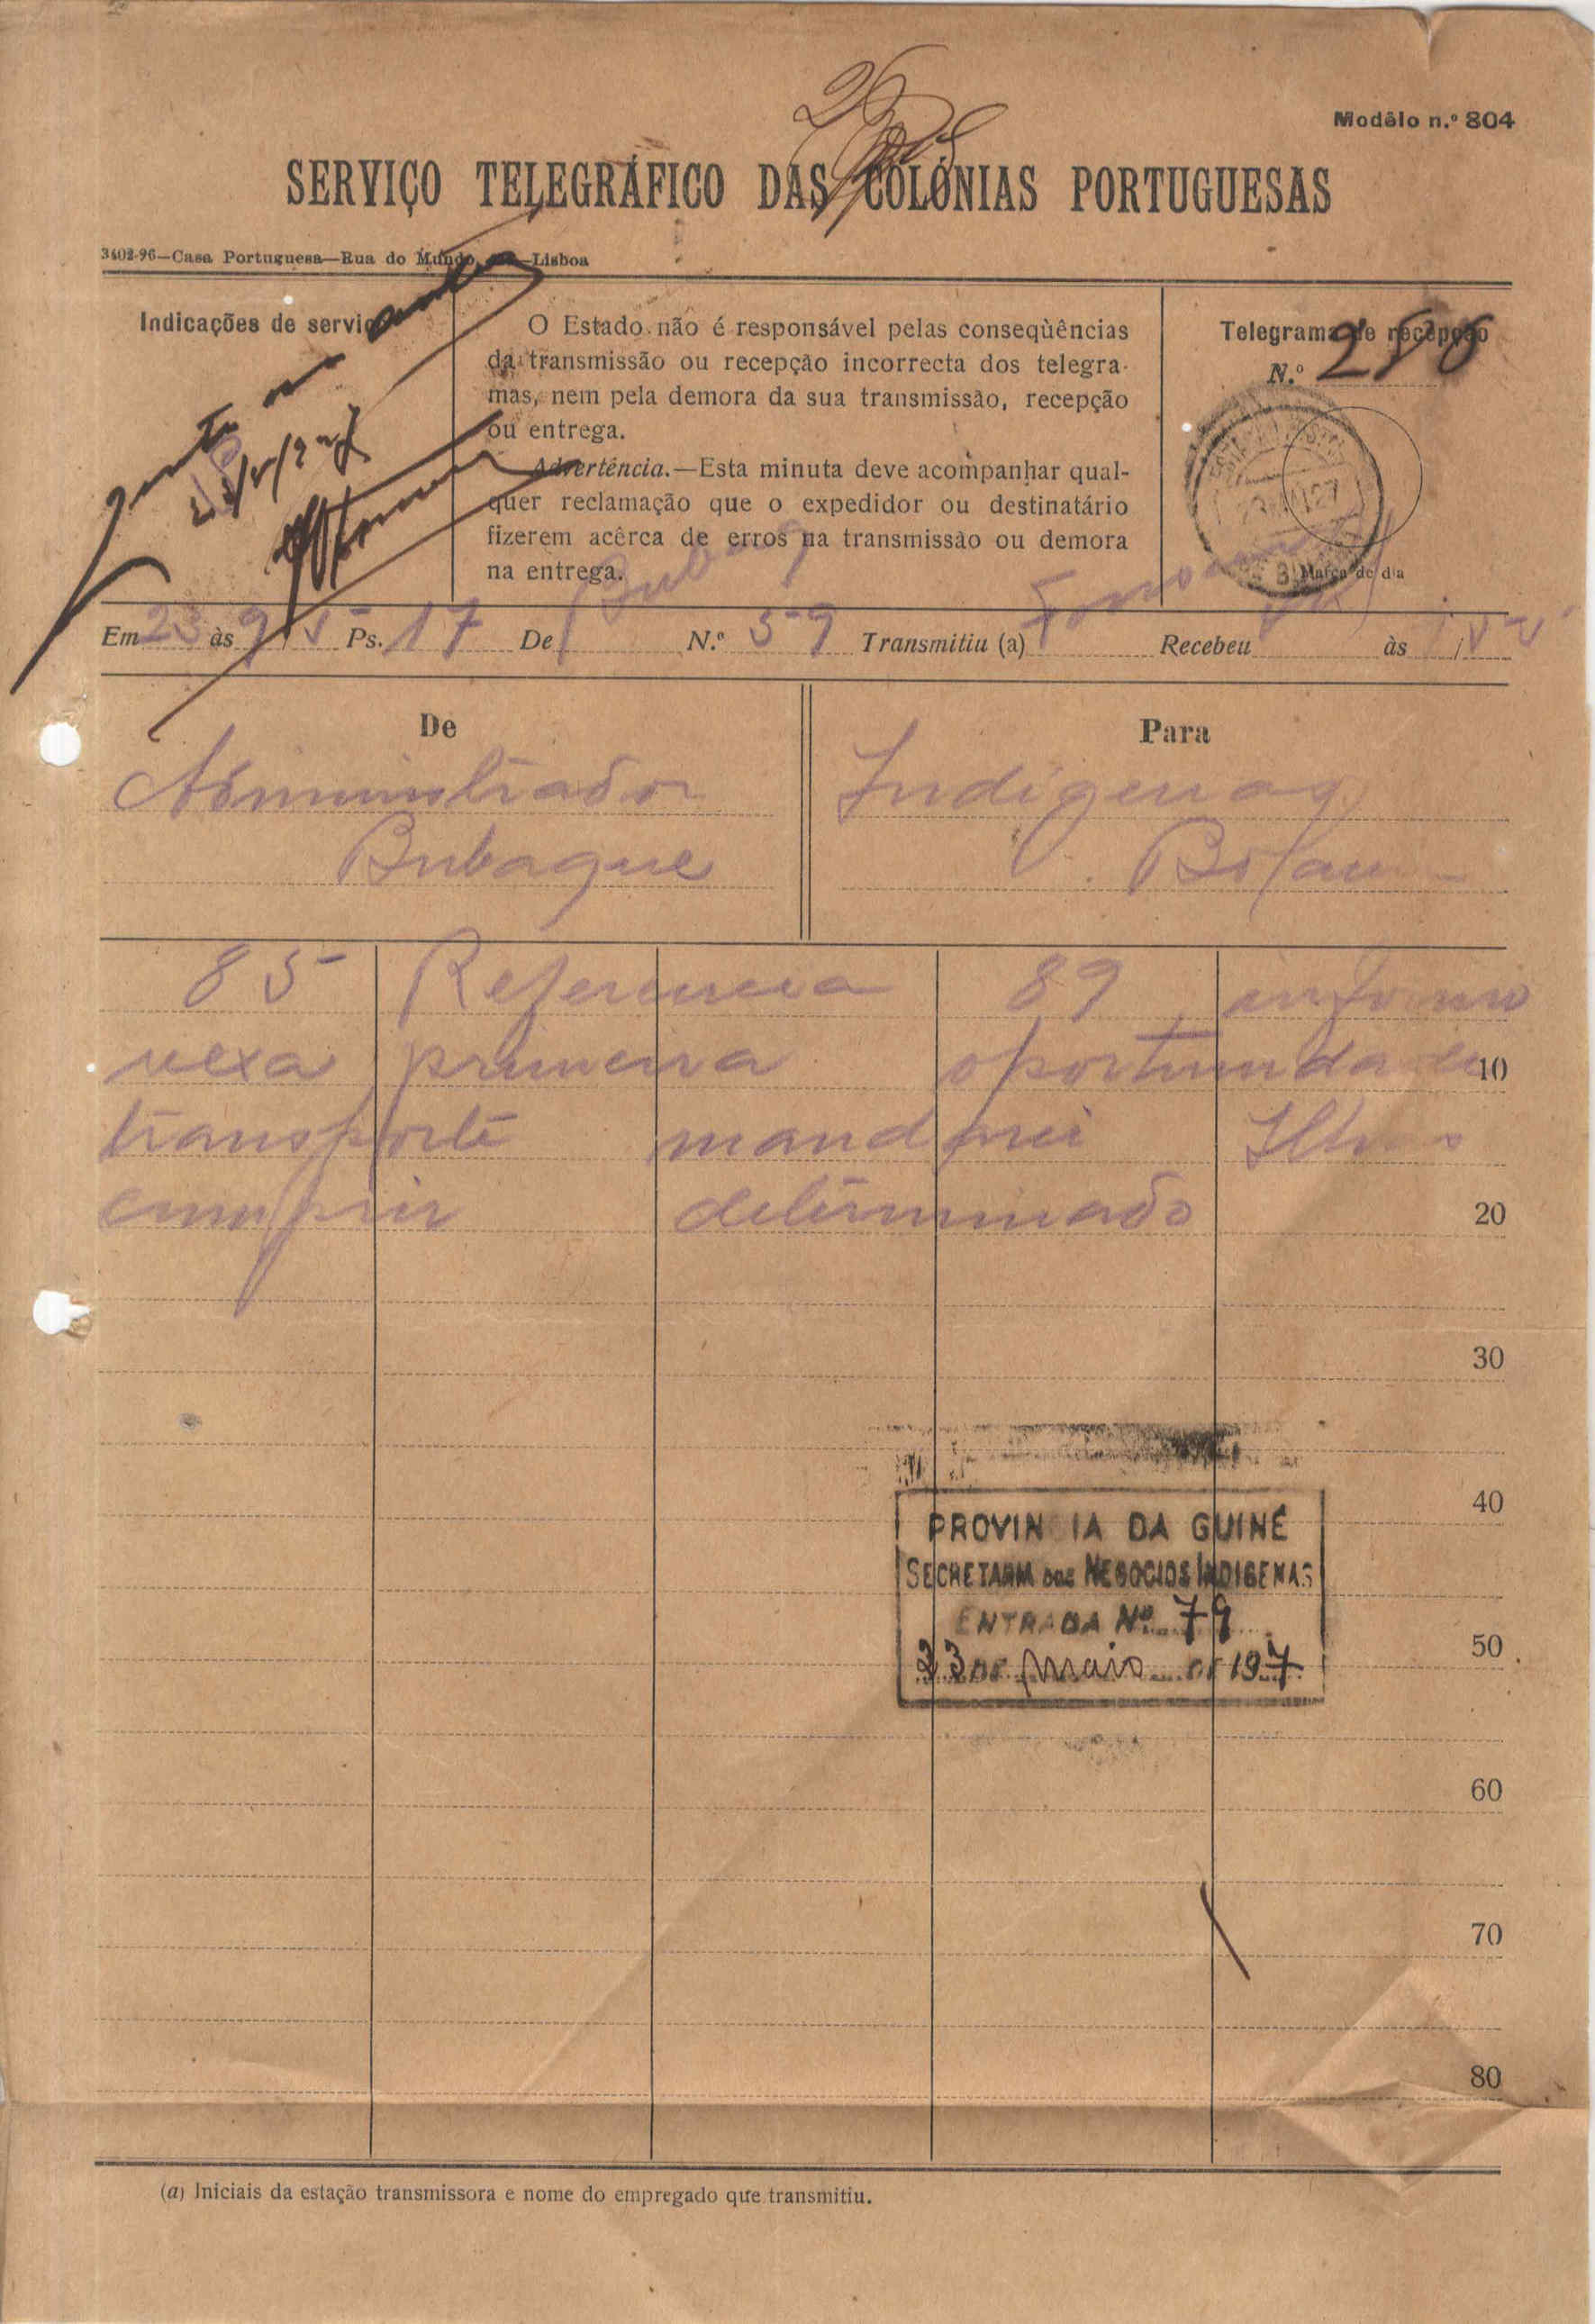 Modêlo n.º 804
SERVIÇO TELEGRÁFICO DAS COLÓNIAS PORTUGUESAS
3402-96—Casa Portuguesa—Rua do Mundo, —Lisboa
Indicações de serviço
O Estado não é responsável pelas conseqùências
da transmissão ou recepção incorrecta dos telegra-
mas, nem pela demora da sua transmissão, recepção
ou entrega.
Advertência.—Esta minuta deve acompanhar qual-
quer reclamação que o expedidor ou destinatário
fizerem acêrca de erros na transmissão ou demora
na entrega.
Telegrama de recepção
N.º
Marca do dia
Em 23 às 9/5 Ps. 17 De Bubaq N.º 59 Transmitiu (a) Recebeu às
De
Administrador
Bubaque
Para
Indigenas
Bolama
85 Referencia 89 informo
vexa primeira oportunidade 10
transporte mandarei
cumprir determinado 20
30
40
PROVINCIA DA GUINÉ
SECRETARIA DOS NEGOCIOS INDIGENAS
ENTRADA Nº 79
23 DE Maio DE 1927
50
60
70
80
(a) Iniciais da estação transmissora e nome do empregado que transmitiu.